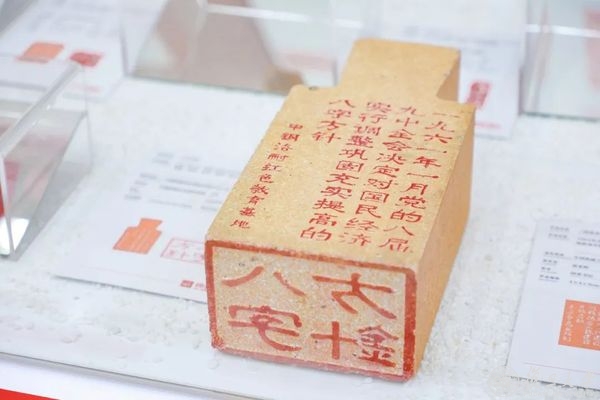 一九六一年一月党的八届
九中全会决定对国民经济
实行调整巩固充实提高的
八字方针
中钢洛耐红色教育基地
八字
方針